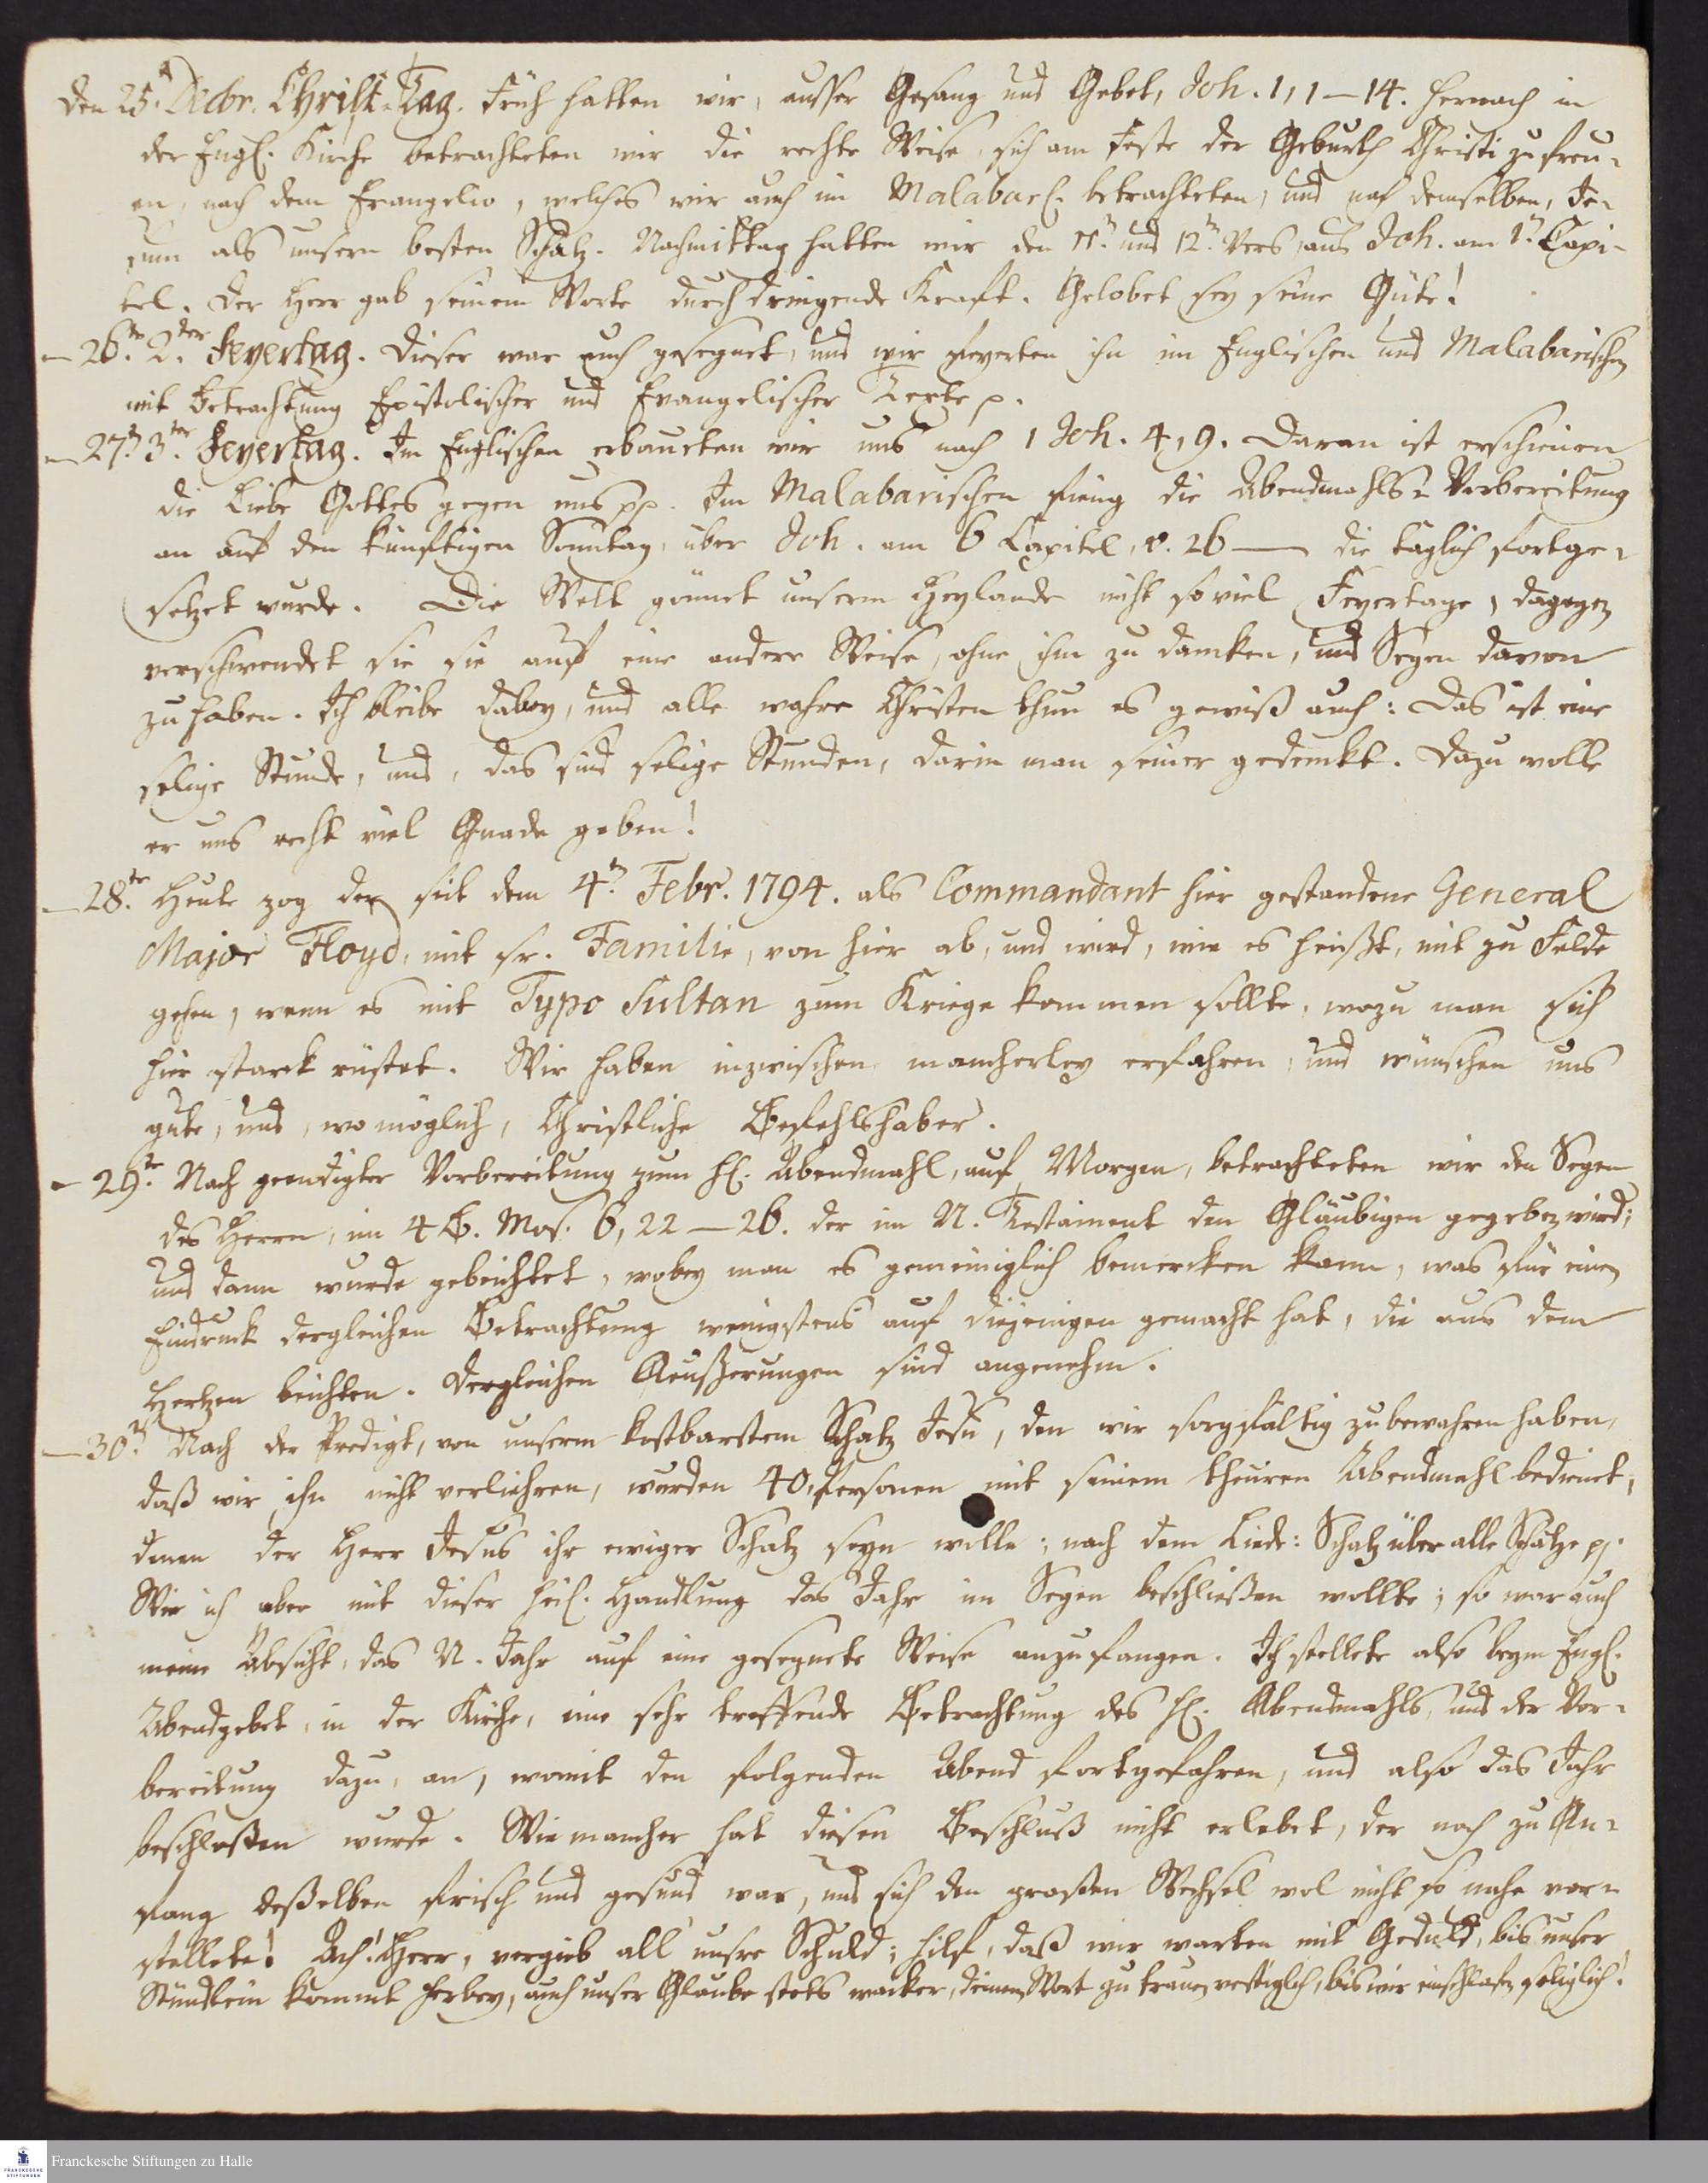 Den 25.n Decbr. Christ-Tag. Früh hatten wir, ausser Gesang und Gebet, Joh. 1, 1–14. hernach in
der Engl. Kirche betrachteten wir die rechte Weise, sich am Feste der Geburth Christi zu freu-
en, nach dem Evangelio, welches wir auch im Malabarl. betrachteten, und nach demselben, Je-
sum als unsern besten Schatz. Nachmittag hatten wir den 11.n und 12.n Vers, aus Joh. am 1.n Capi-
tel. Der Herr gab seinem Worte durchdringende Kraft. Gelobet sey seine Güte!
– 26.te 2.ter Feyertag. Dieser war auch gesegnet, und wir feyerten ihn im Englischen und Malabarischen
mit Betrachtung Epistolischer und Evangelischer Texte p.
– 27.n 3.ter Feyertag. Im Englischen erbaueten wir uns nach 1 Joh. 4, 9. Daran ist erschienen
die Liebe Gottes gegen uns pp. Im Malabarischen fieng die Abendmahls-Vorbereitung
an auf den künftigen Sonntag, über Joh. am 6 Capitel, v. 26 — die täglich fortge-
setzet wurde. Die Welt gönnet unserm Heylande nicht so viel Feyertage, dagegen
verschwendet sie sie auf eine andere Weise, ohne ihm zu dancken, und Segen davon
zu haben. Ich bleibe dabey, und alle wahre Christen thun es gewiß auch: Das ist eine
selige Stunde, und, das sind selige Stunden, darin man seiner gedenckt. Dazu wolle
er uns recht viel Gnade geben!
– 28.te Heute zog der seit dem 4.n Febr. 1794. als Commandant hier gestandene General
Major Floyd, mit sr. Familie, von hier ab, und wird, wie es heißt, mit zu Felde
gehen, wenn es mit Typo Sultan zum Kriege kommen sollte, wozu man sich
hier starck rüstet. Wir haben inzwischen mancherley erfahren, und wünschen uns
gute, und, wo möglich, Christliche Befehlshaber.
– 29.te Nach geendigter Vorbereitung zum hl. Abendmahl, auf Morgen, betrachteten wir den Segen
des Herrn, im 4 B. Mos. 6, 22–26. der im N. Testament den Gläubigen gegeben wird;
und dann wurde gebeichtet, wobey man es gemeiniglich bemercken kann, was für einen
Eindruck dergleichen Betrachtung wenigstens auf diejenigen gemacht hat, die aus dem
Hertzen beichten. Dergleichen Aeußerungen sind angenehm.
– 30.n Nach der Predigt, von unserm kostbarstem Schatz Jesu, den wir sorgfältig zu bewahren haben,
daß wir ihn nicht verliehren, wurden 40 Personen mit seinem theuren Abendmahl bedienet,
denen der Herr Jesus ihr ewiger Schatz seyn wolle; nach dem Liede: Schatz über alle Schätze pp.
Wie ich aber mit dieser heil. Handlung das Jahr im Segen beschließen wollte; so war auch
meine Absicht, das N. Jahr auf eine gesegnete Weise anzufangen. Ich stellete also beym Engl.
Abendgebet, in der Kirche, eine sehr treffende Betrachtung des hl. Abendmahls, und der Vor-
bereitung dazu, an, womit den folgenden Abend fortgefahren, und also das Jahr
beschloßen wurde. Wie mancher hat diesen Beschluß nicht erlebet, der noch zu An-
fang deßelben frisch und gesund war, und sich den großen Wechsel wol nicht so nahe vor-
stellete! Ach! Herr, vergieb all unsre Schuld; hilf, daß wir warten mit Geduld, bis unser
Stündlein kommt herbey, auch unser Glaube stets wacker, deinem Wort zu trauen vestiglich, bis wir einschlafen seliglich!
Franckesche Stiftungen zu Halle